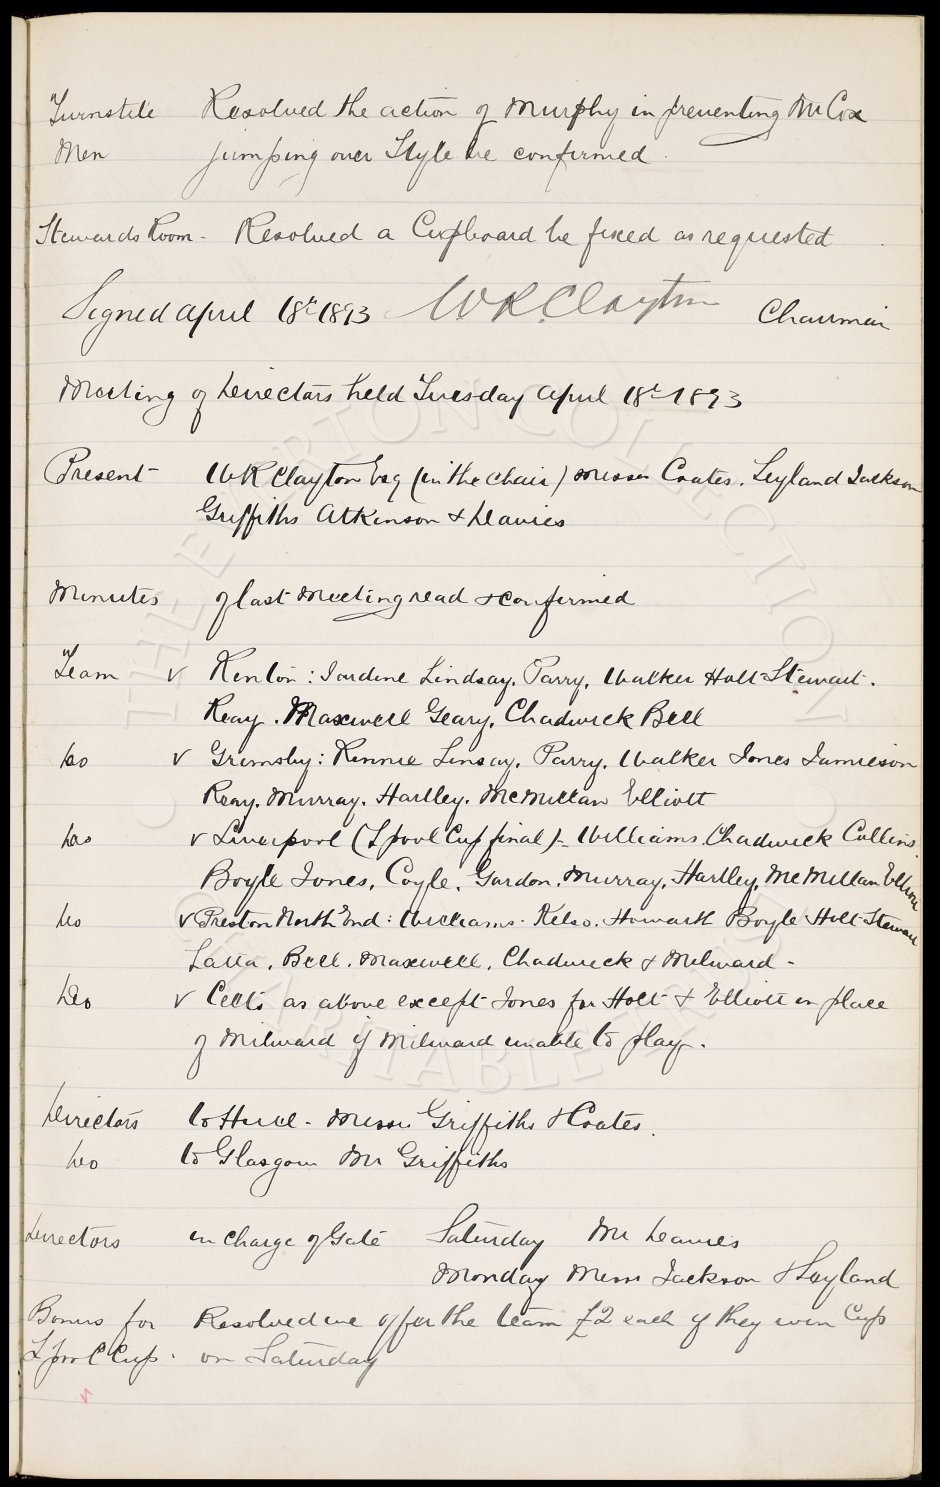 Turnstile Resolved the action of Murphy in preventing Mr Cox
Men jumping over Style be confirmed
Stewards Room - Resolved a Cupboard be fixed as requested
Signed April 18th 1893 WR Clayton Chairman
Meeting of Directors held Tuesday April 18th 1893
Present WR Clayton Esq (in the chair) Messrs Coates, Leyland Jackson
Griffiths Atkinson & Davies
Minutes of last Meeting read & confirmed
Team v Renton: Jardine Lindsay, Parry, Walker Holt Stewart.
Reay. Maxwell Geary, Chadwick Bell
Do v Grimsby: Rennie Linsay, Parry, Walker Jones Jamieson
Reay. Murray. Hartley. McMillan Elliott
Do v Liverpool (Lpool Cup final) - Williams, Chadwick Collins
Boyle Jones, Coyle, Gordon, Murray, Hartley, McMillan Elliott
Do v Preston North End: Williams. Kelso. Howarth Boyle Holt Stewart
Latta, Bell. Maxwell, Chadwick & Milward -
Do v Celts as above except Jones for Holt & Elliott in place
of Milward if Milward unable to play.
Directors to Messrs Griffiths & Coates.
Do to Glasgow Mr Griffiths
Directors in charge of Gate Saturday Mr Davies
Monday Messrs Jackson & Leyland
Bonus for Resolved we offer the team £2 each if they win Cup
Lpool Cup. on Saturday
THE EVERTON COLLECTION CHARITABLE TRUST